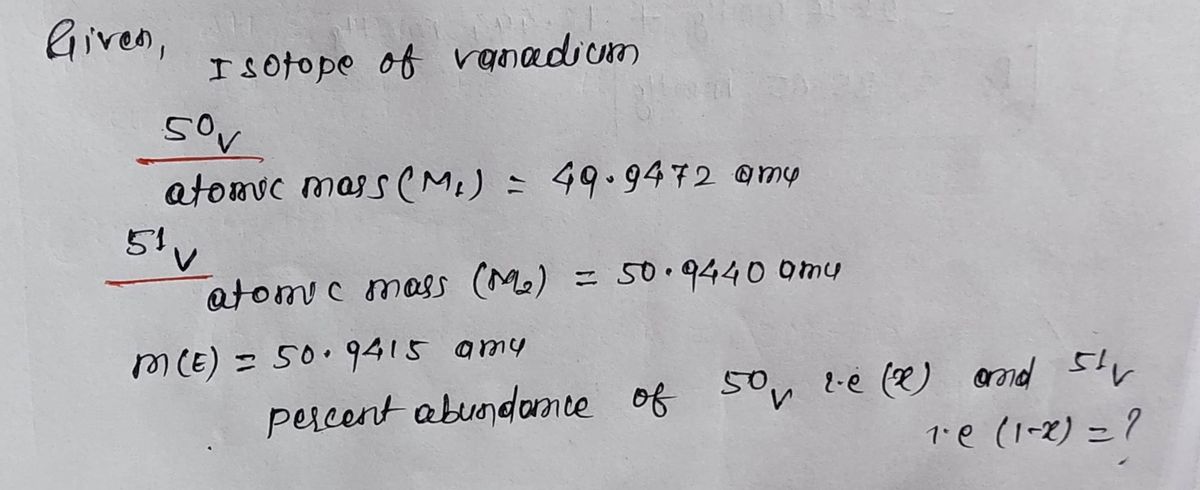 Given,
Isotope of vanadium
50V
atomic mass (M1) = 49.9472 amu
51V
atomic mass (M2) = 50.9440 amu
m(E) = 50.9415 amu
percent abundance of 50V i.e (x) and 51V
i.e (1-x) = ?